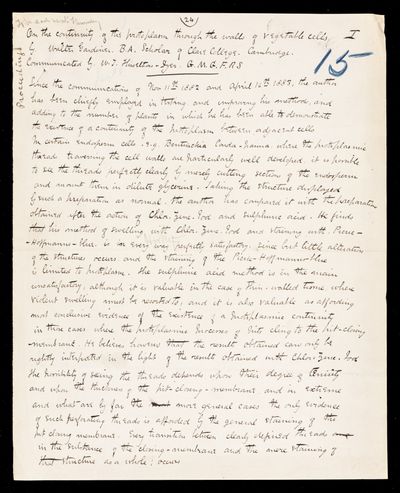 (24)
Proceedings
On the continuity of the protoplasm through the walls of vegetable cells. I
by Walter Gardiner. B.A. Scholar of Clare College. Cambridge.
15
Communicated by W.T. Thiselton-Dyer. C.M.G. F.R.S
Since the communication of Nov 11th 1882 and April 12th 1883, the author
has been chiefly employed in testing and improving his method, and
adding to the number of plants in which he has been able to demonstrate
the existence of a continuity of the protoplasm between adjacent cells
In certain endosperm cells e.g. Bentinckia Conda-panna where the protoplasmic
threads traversing the cell walls are particularly well developed it is possible
to see the threads perfectly clearly by merely cutting sections of the endosperm
and mount them in dilute glycerine. Taking the structure displayed
by such a preparation as normal the author has compared it with the preparation
obtained after the action of Chlor. Zinc. Iod and sulphuric acid. He finds
that his method of swelling with Chlor. Zinc. Iod and staining with Picric-
-Hoffmann-blue is in every way perfectly satisfactory, since but little alteration
of the structure occurs and the staining of the Picric-Hoffmann-blue
is limited to protoplasm. The sulphuric acid method is in the main
unsatisfactory, although it is valuable in the case of thin-walled tissue where
violent swelling must be resorted to, and it is also valuable as affording
most conclusive evidence of the existence of a protoplasmic continuity
in those cases where the protoplasmic processes of pits cling to the pit-closing-
-membrane. He believes however that the result obtained can only be
rightly interpreted in the light of the result obtained with Chlor. Zinc. Iod
The possibility of seeing the threads depends upon their degree of tenuity
and upon the thickness of the pit-closing-membrane and in extreme
and what are by far the most general cases the only evidence
of such perforating threads is afforded by the general staining of the
pit closing membrane. Every transition between clearly defined threads
in the substance of the closing-membrane and the mere staining of
that structure as a whole, occurs